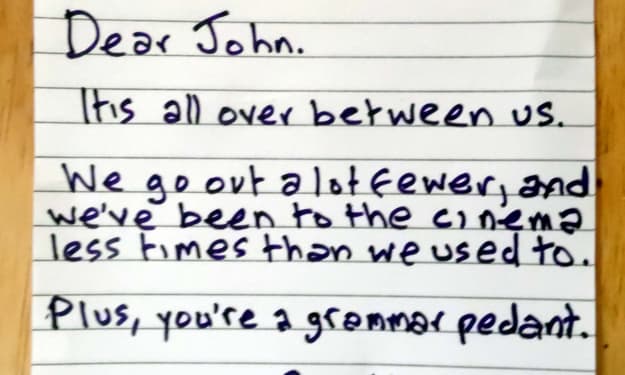 Dear John.
It is all over between us.
We go out a lot fewer, and
we've been to the cinema
less times than we used to.
Plus, you're a grammar pedant.